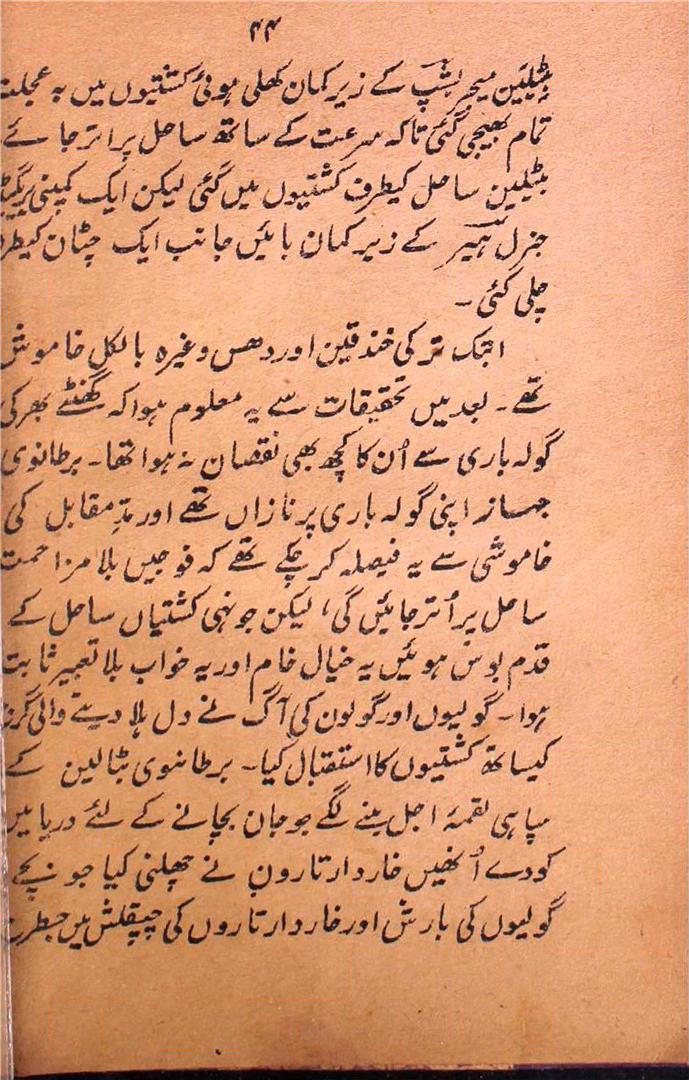 ۴۴
بٹیلین میجر بشپ کے زیر کمان کھلی ہوئی کشتیوں میں بہ عجلت
تمام بھیجی گئی تاکہ سرعت کے ساتھ ساحل پر اتر جائے
بٹیلین ساحل کیطرف کشتیوں میں گئی لیکن ایک کمپنی بریگیڈ
جنرل ہیر کے زیر کمان بائیں جانب ایک چٹان کیطرف
چلی گئی ۔
ابتک تر کی خندقین اور دھس وغیرہ بالکل خاموش
تھے ۔ بعد میں تحقیقات سے یہ معلوم ہوا کہ گھنٹے بھر کی
گولہ باری سے اُن کا کچھ بھی نقصان نہ ہوا تھا ۔ برطانوی
جہاز اپنی گولہ باری پر نازاں تھے اور مدِ مقابل کی
خاموشی سے یہ فیصلہ کر چکے تھے کہ فوجیں بلا مزاحمت
ساحل پر اُتر جائیں گی، لیکن جونہی کشتیاں ساحل کے
قدم بوس ہوئیں یہ خیال خام اور یہ خواب بلا تعبیر ثابت
ہوا ۔ گولیوں اور گولون کی آگ نے دل ہلا دینے والی گرج
کیساتھ کشتیوں کا استقبال کیا ۔ برطانوی بٹالین کے
سپاہی لقمۂ اجل بننے لگے جو جان بچانے کے لئے دریا میں
کودے اُنھیں خاردار تارون نے چھلنی کیا جو بچے
گولیوں کی بارش اور خاردار تاروں کی چپقلش میں جسطرح